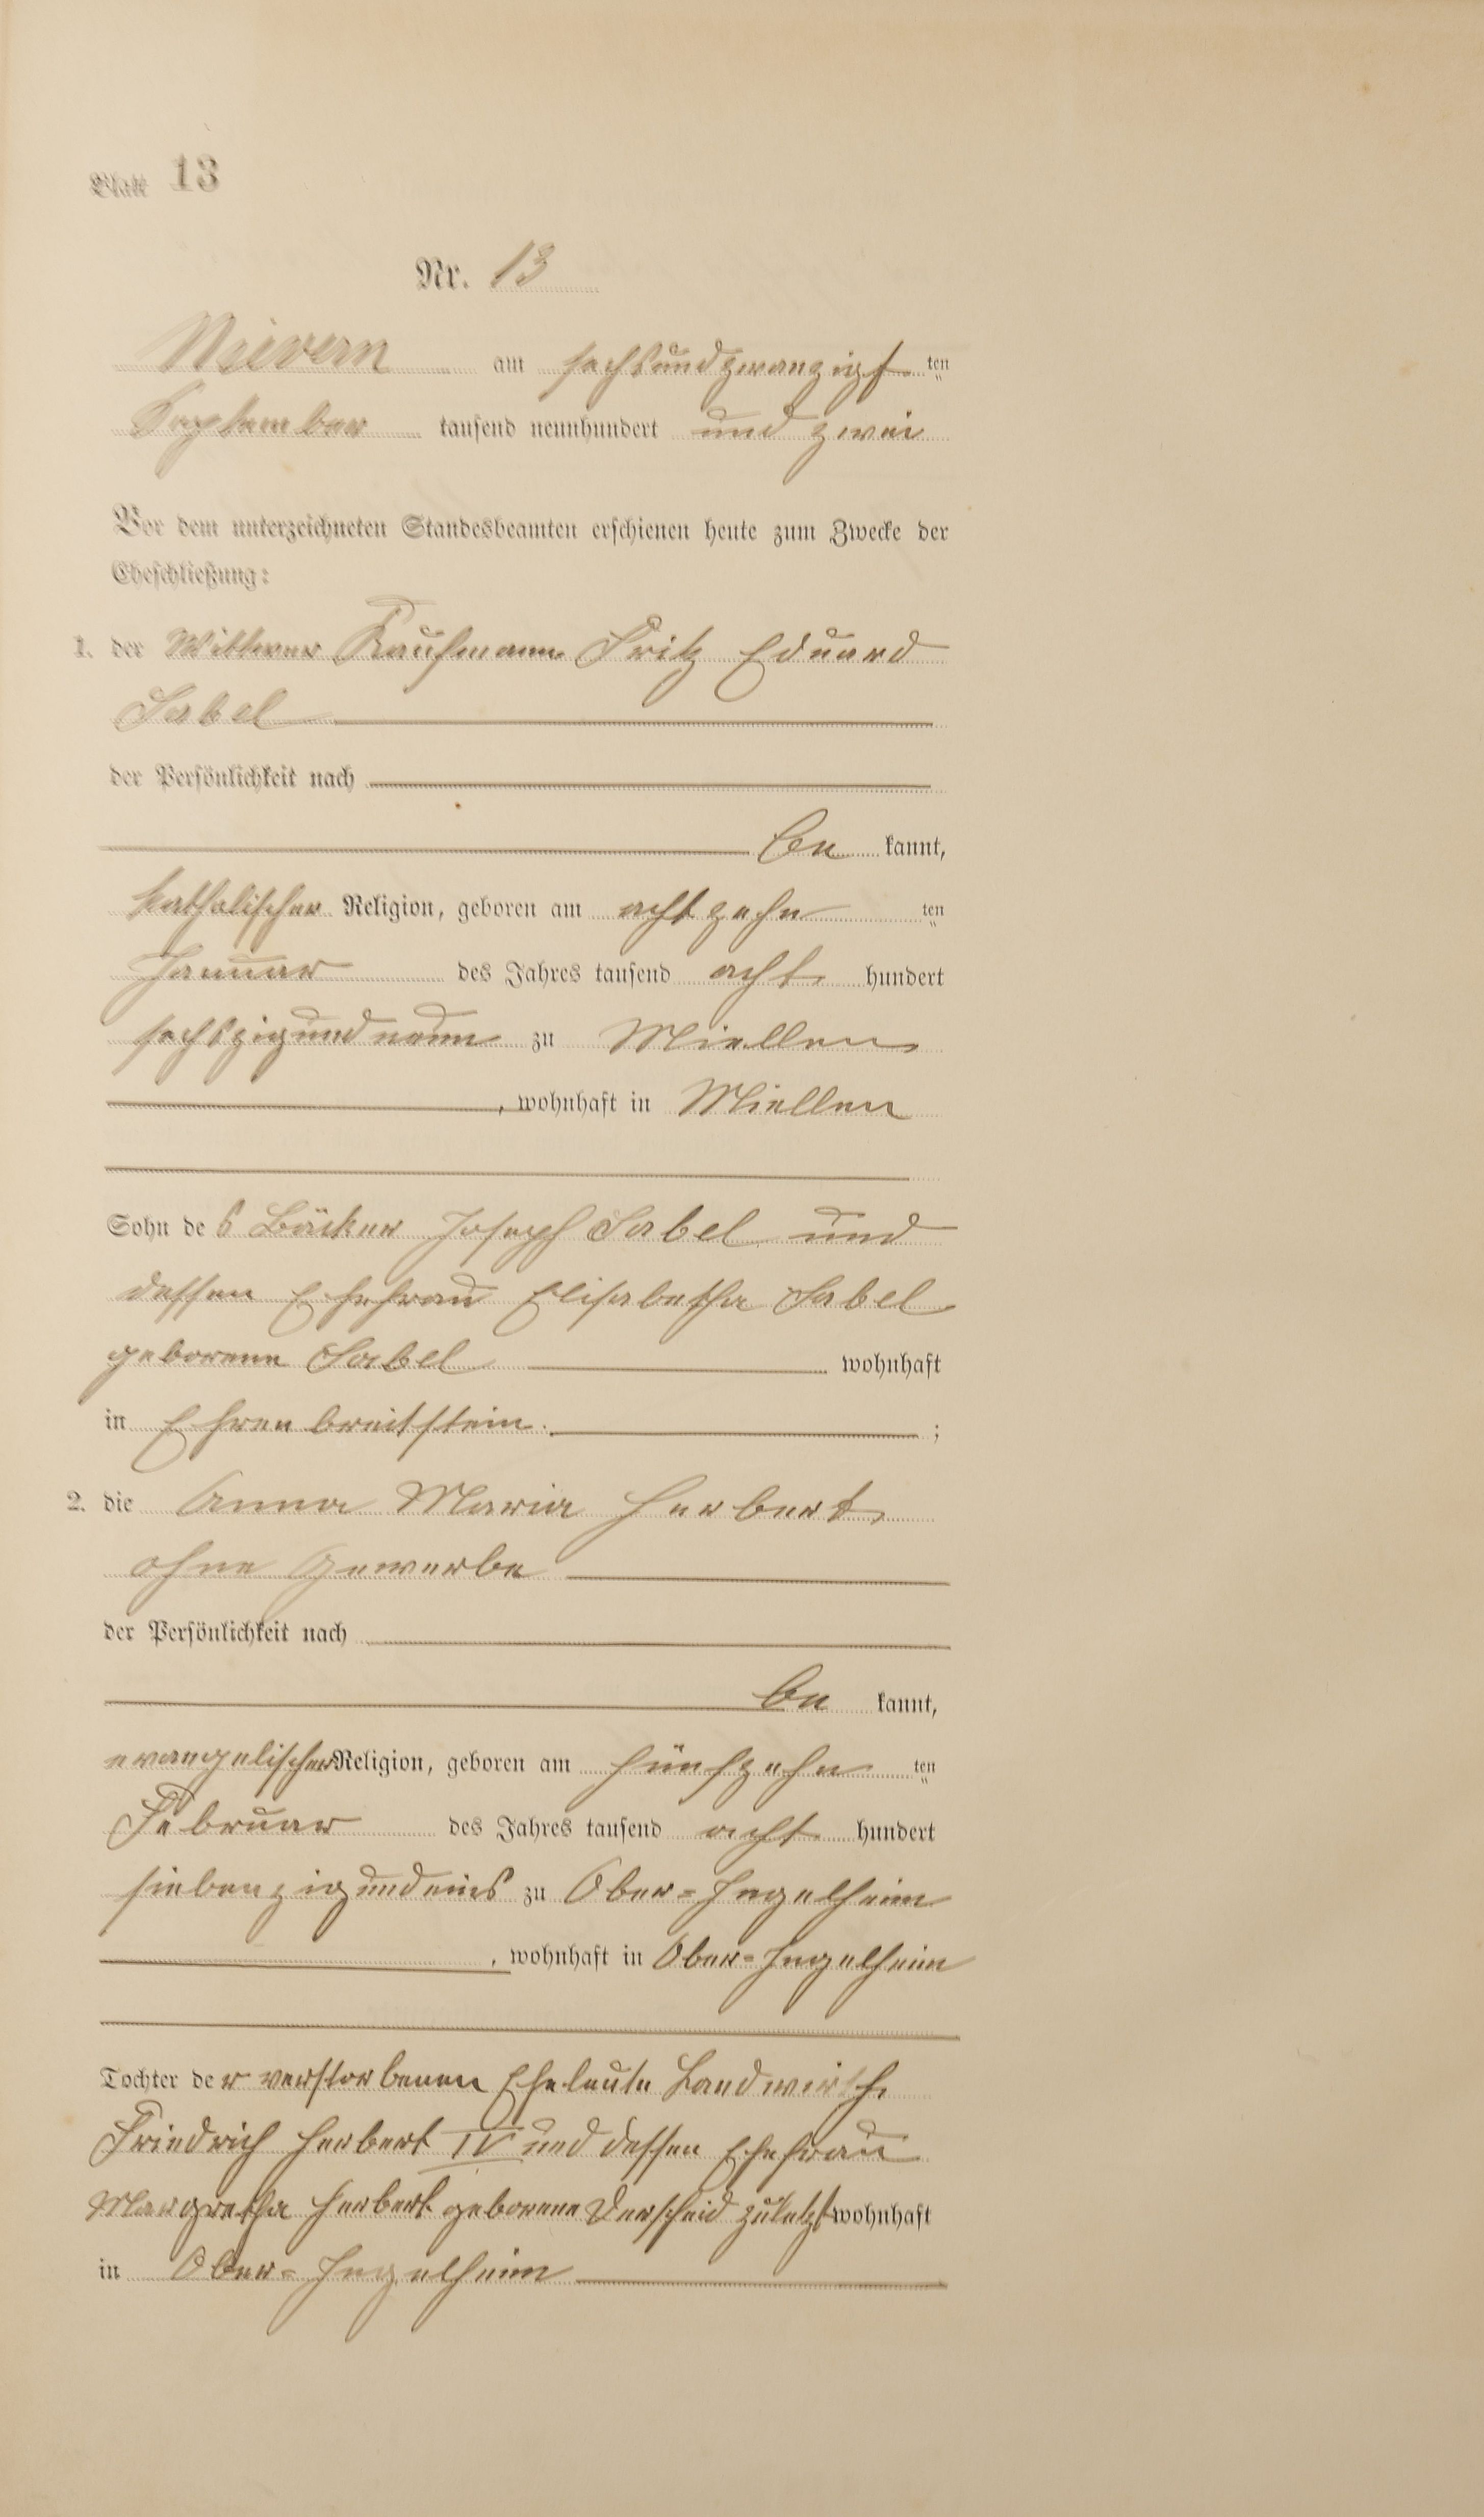 Blatt 13
Nr. 13
Nievern am sechsundzwanzigs ten
September tausend neunhundert und zwei
Vor dem unterzeichneten Standesbeamten erschienen heute zum Zwecke der
Eheschließung:
1. der Wittwer Kaufmann Fritz Eduard
Sabel
der Persönlichkeit nach
be kannt,
katholischer Religion, geboren am achtzehn ten
Januar des Jahres tausend acht hundert
sechszigundneun zu Miellen
, wohnhaft in Miellen
Sohn des Bäcker Joseph Sabel und
dessen Ehefrau Elisabetha Sabel
geborene Sabel wohnhaft
in Ehrenbreitstein. ;
2. die Anna Maria Herbert,
ohne Gewerbe
der Persönlichkeit nach
be kannt,
evangelischer Religion, geboren am fünfzehn ten
Februar des Jahres tausend acht hundert
siebenzigundeins zu Ober-Ingelheim
, wohnhaft in Ober-Ingelheim
Tochter der verstorbenen Eheleute Landwirth
Friedrich Herbert IV und dessen Ehefrau
Margretha Herbert geborene Derscheid zuletzt wohnhaft
in Ober-Ingelheim